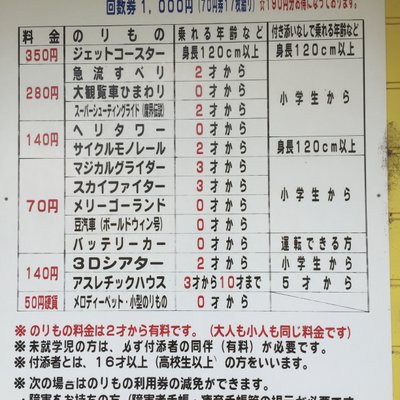 回数券1,000円(70円券17枚綴り) ☆190円分お得になっております。
料金 のりもの 乗れる年齢など 付き添いなしで乗れる年齢など
350円 ジェットコースター 身長120cm以上 身長120cm以上
280円 急流すべり 2才から 小学生から
大観覧車ひまわり 0才から
スーパーシューティングライド(魔界伝説) 2才から
140円 ヘリタワー 0才から
サイクルモノレール 2才から 身長120cm以上
70円 マジカルグライダー 3才から 小学生から
スカイファイター 3才から
メリーゴーランド 0才から
豆汽車(ボールドウィン号) 0才から
バッテリーカー 0才から 運転できる方
140円 3Dシアター 2才から 小学生から
アスレチックハウス 3才から10才まで 5才から
50円硬貨 メロディーペット・小型のりもの 0才から
※のりもの料金は2才から有料です。(大人も小人も同じ料金です)
※未就学児の方は、必ず付添者の同伴(有料)が必要です。
※付添者とは、16才以上(高校生以上)の方をいいます。
※次の場合はのりもの利用券の減免ができます。
・障害をお持ちの方(障害者手帳・療育手帳等の提示が必要です)